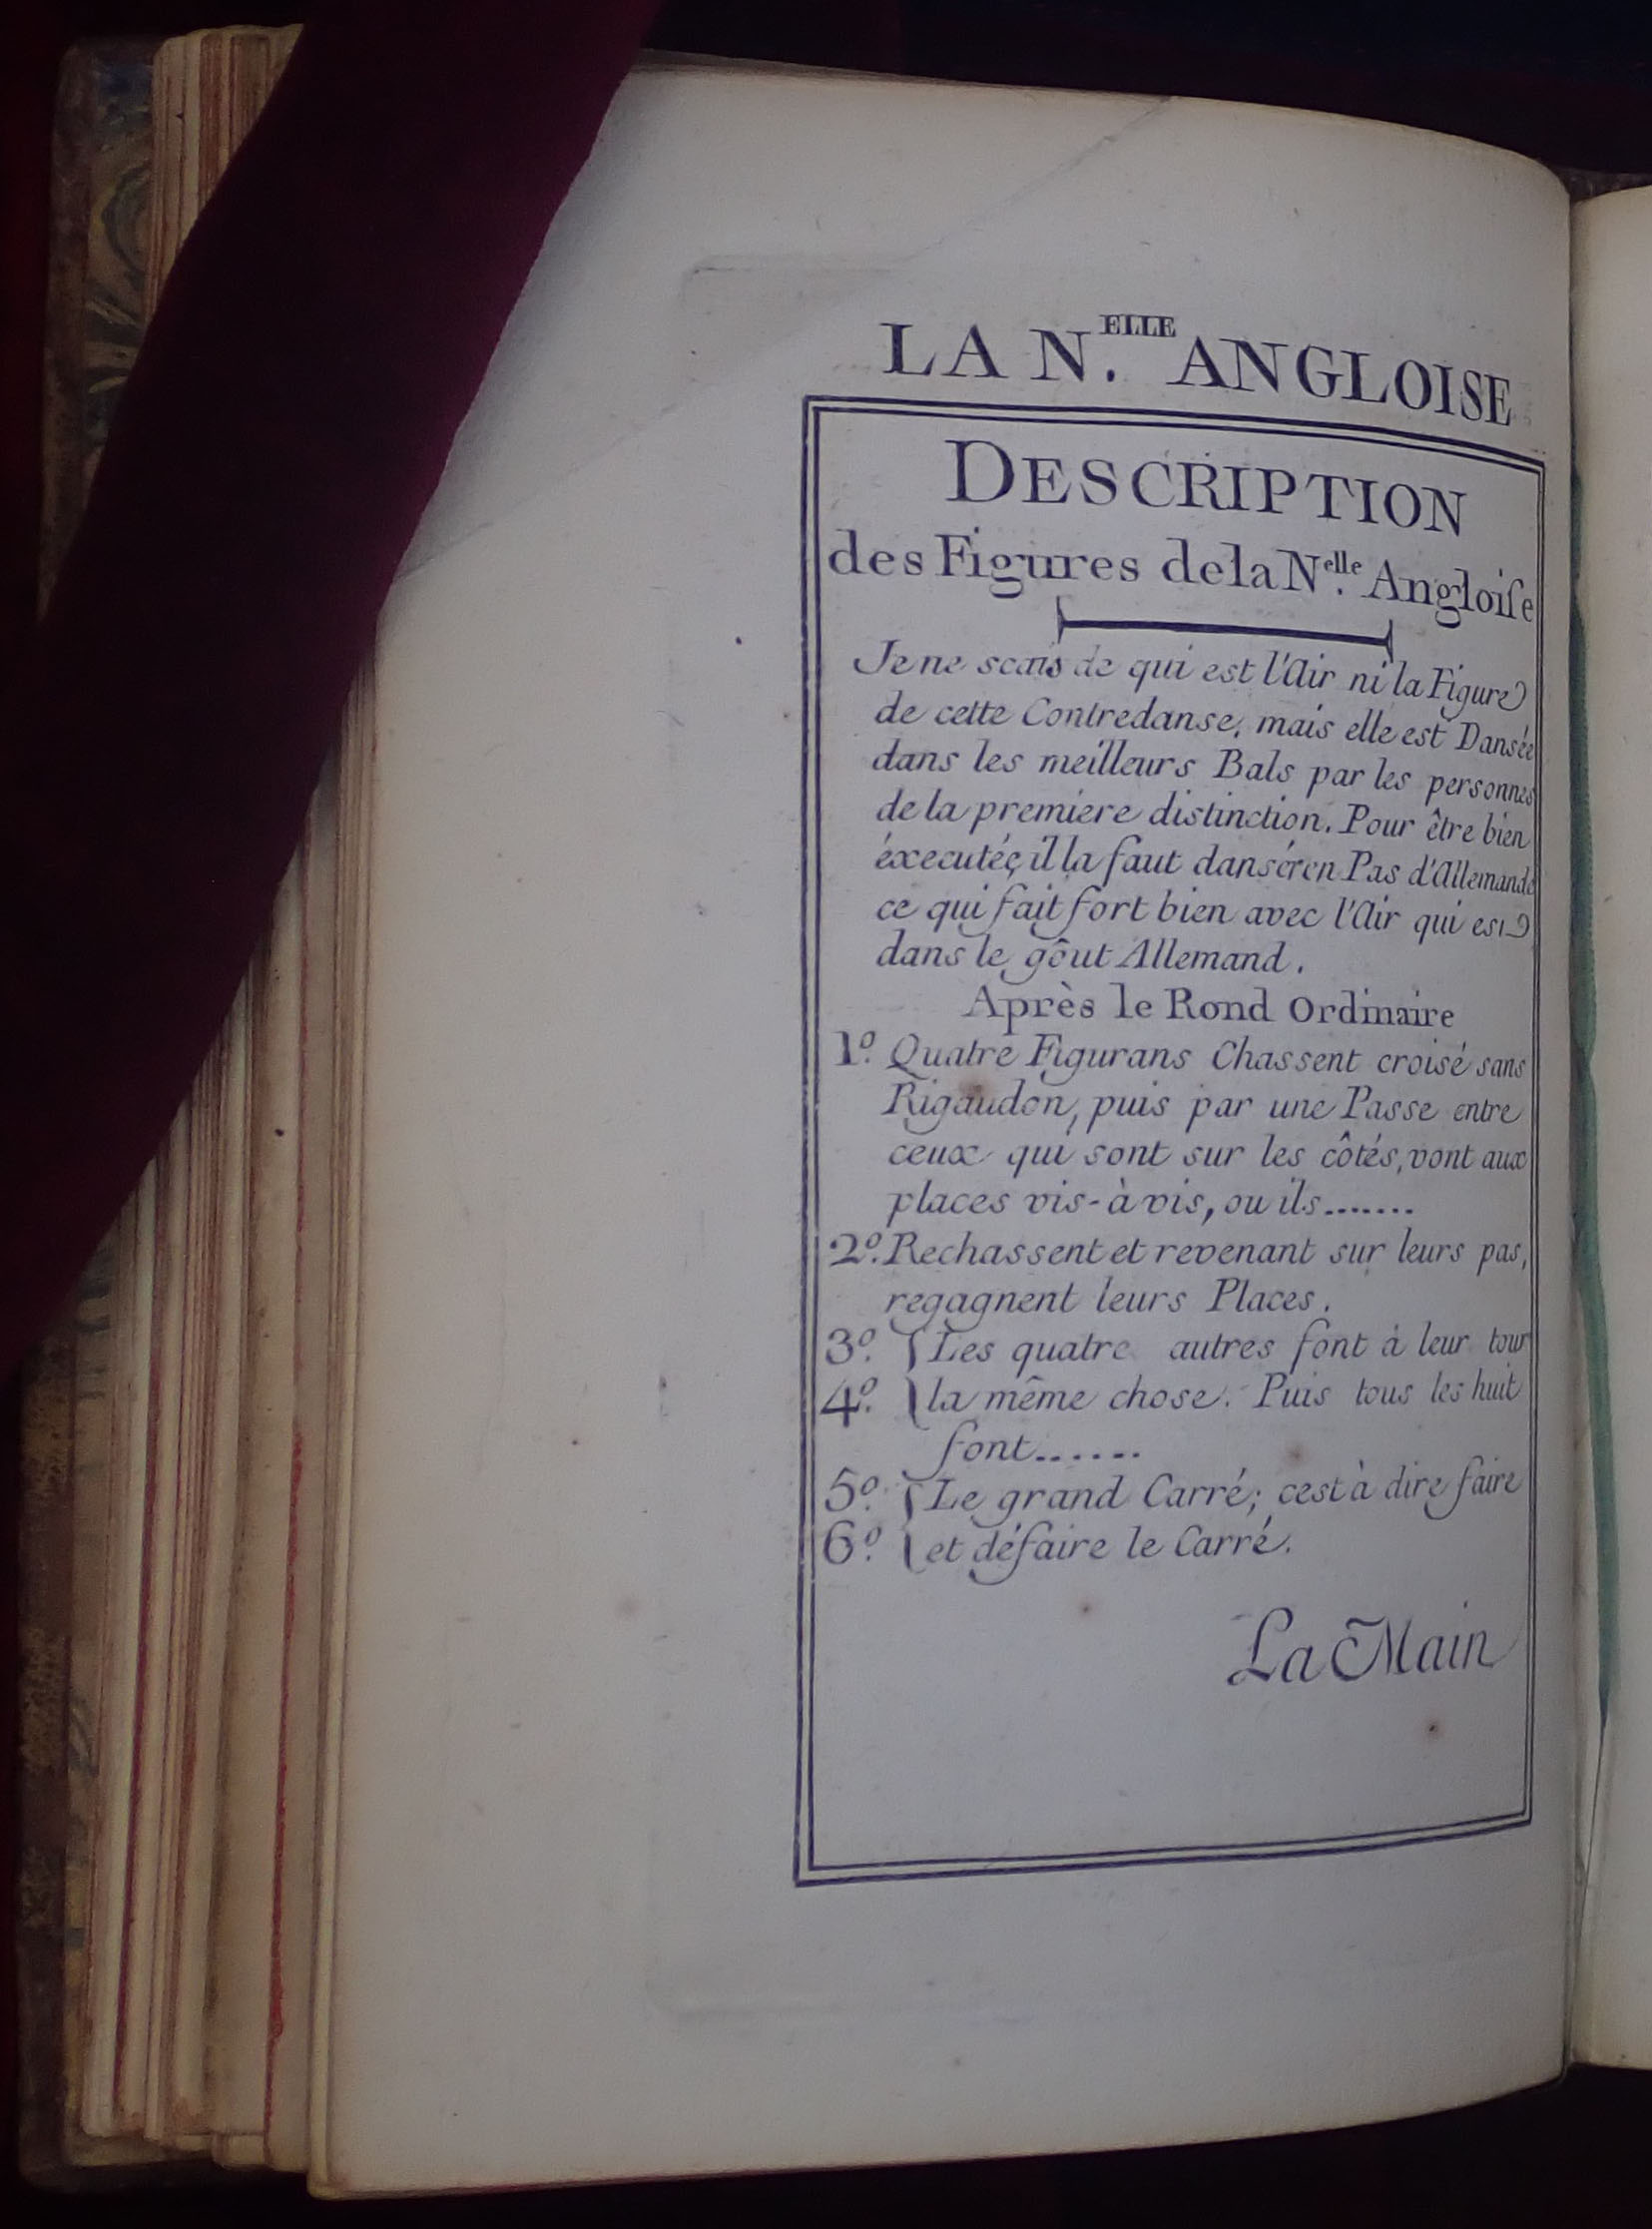 LA N.ELLE ANGLOISE
DESCRIPTION
des Figures de la N.elle Angloiſe
Je ne scais de qui est l'Air ni la Figure
de cette Contredanse, mais elle est Dansée
dans les meilleurs Bals par les personnes
de la premiere distinction. Pour être bien
éxecutée, il la faut dansér en Pas d'Allemande
ce qui fait fort bien avec l'Air qui est
dans le gôut Allemand.
Après le Rond Ordinaire
1.º Quatre Figurans Chassent croisé sans
Rigaudon, puis par une Passe entre
ceux qui sont sur les côtés, vont aux
places vis-à vis, ou ils.......
2.º Rechassent et revenant sur leurs pas,
regagnent leurs Places.
3.º { Les quatre autres font à leur tour
4.º { la même chose. Puis tous les huit
font......
5.º { Le grand Carré; cest à dire faire
6.º { et défaire le Carré.
La Main